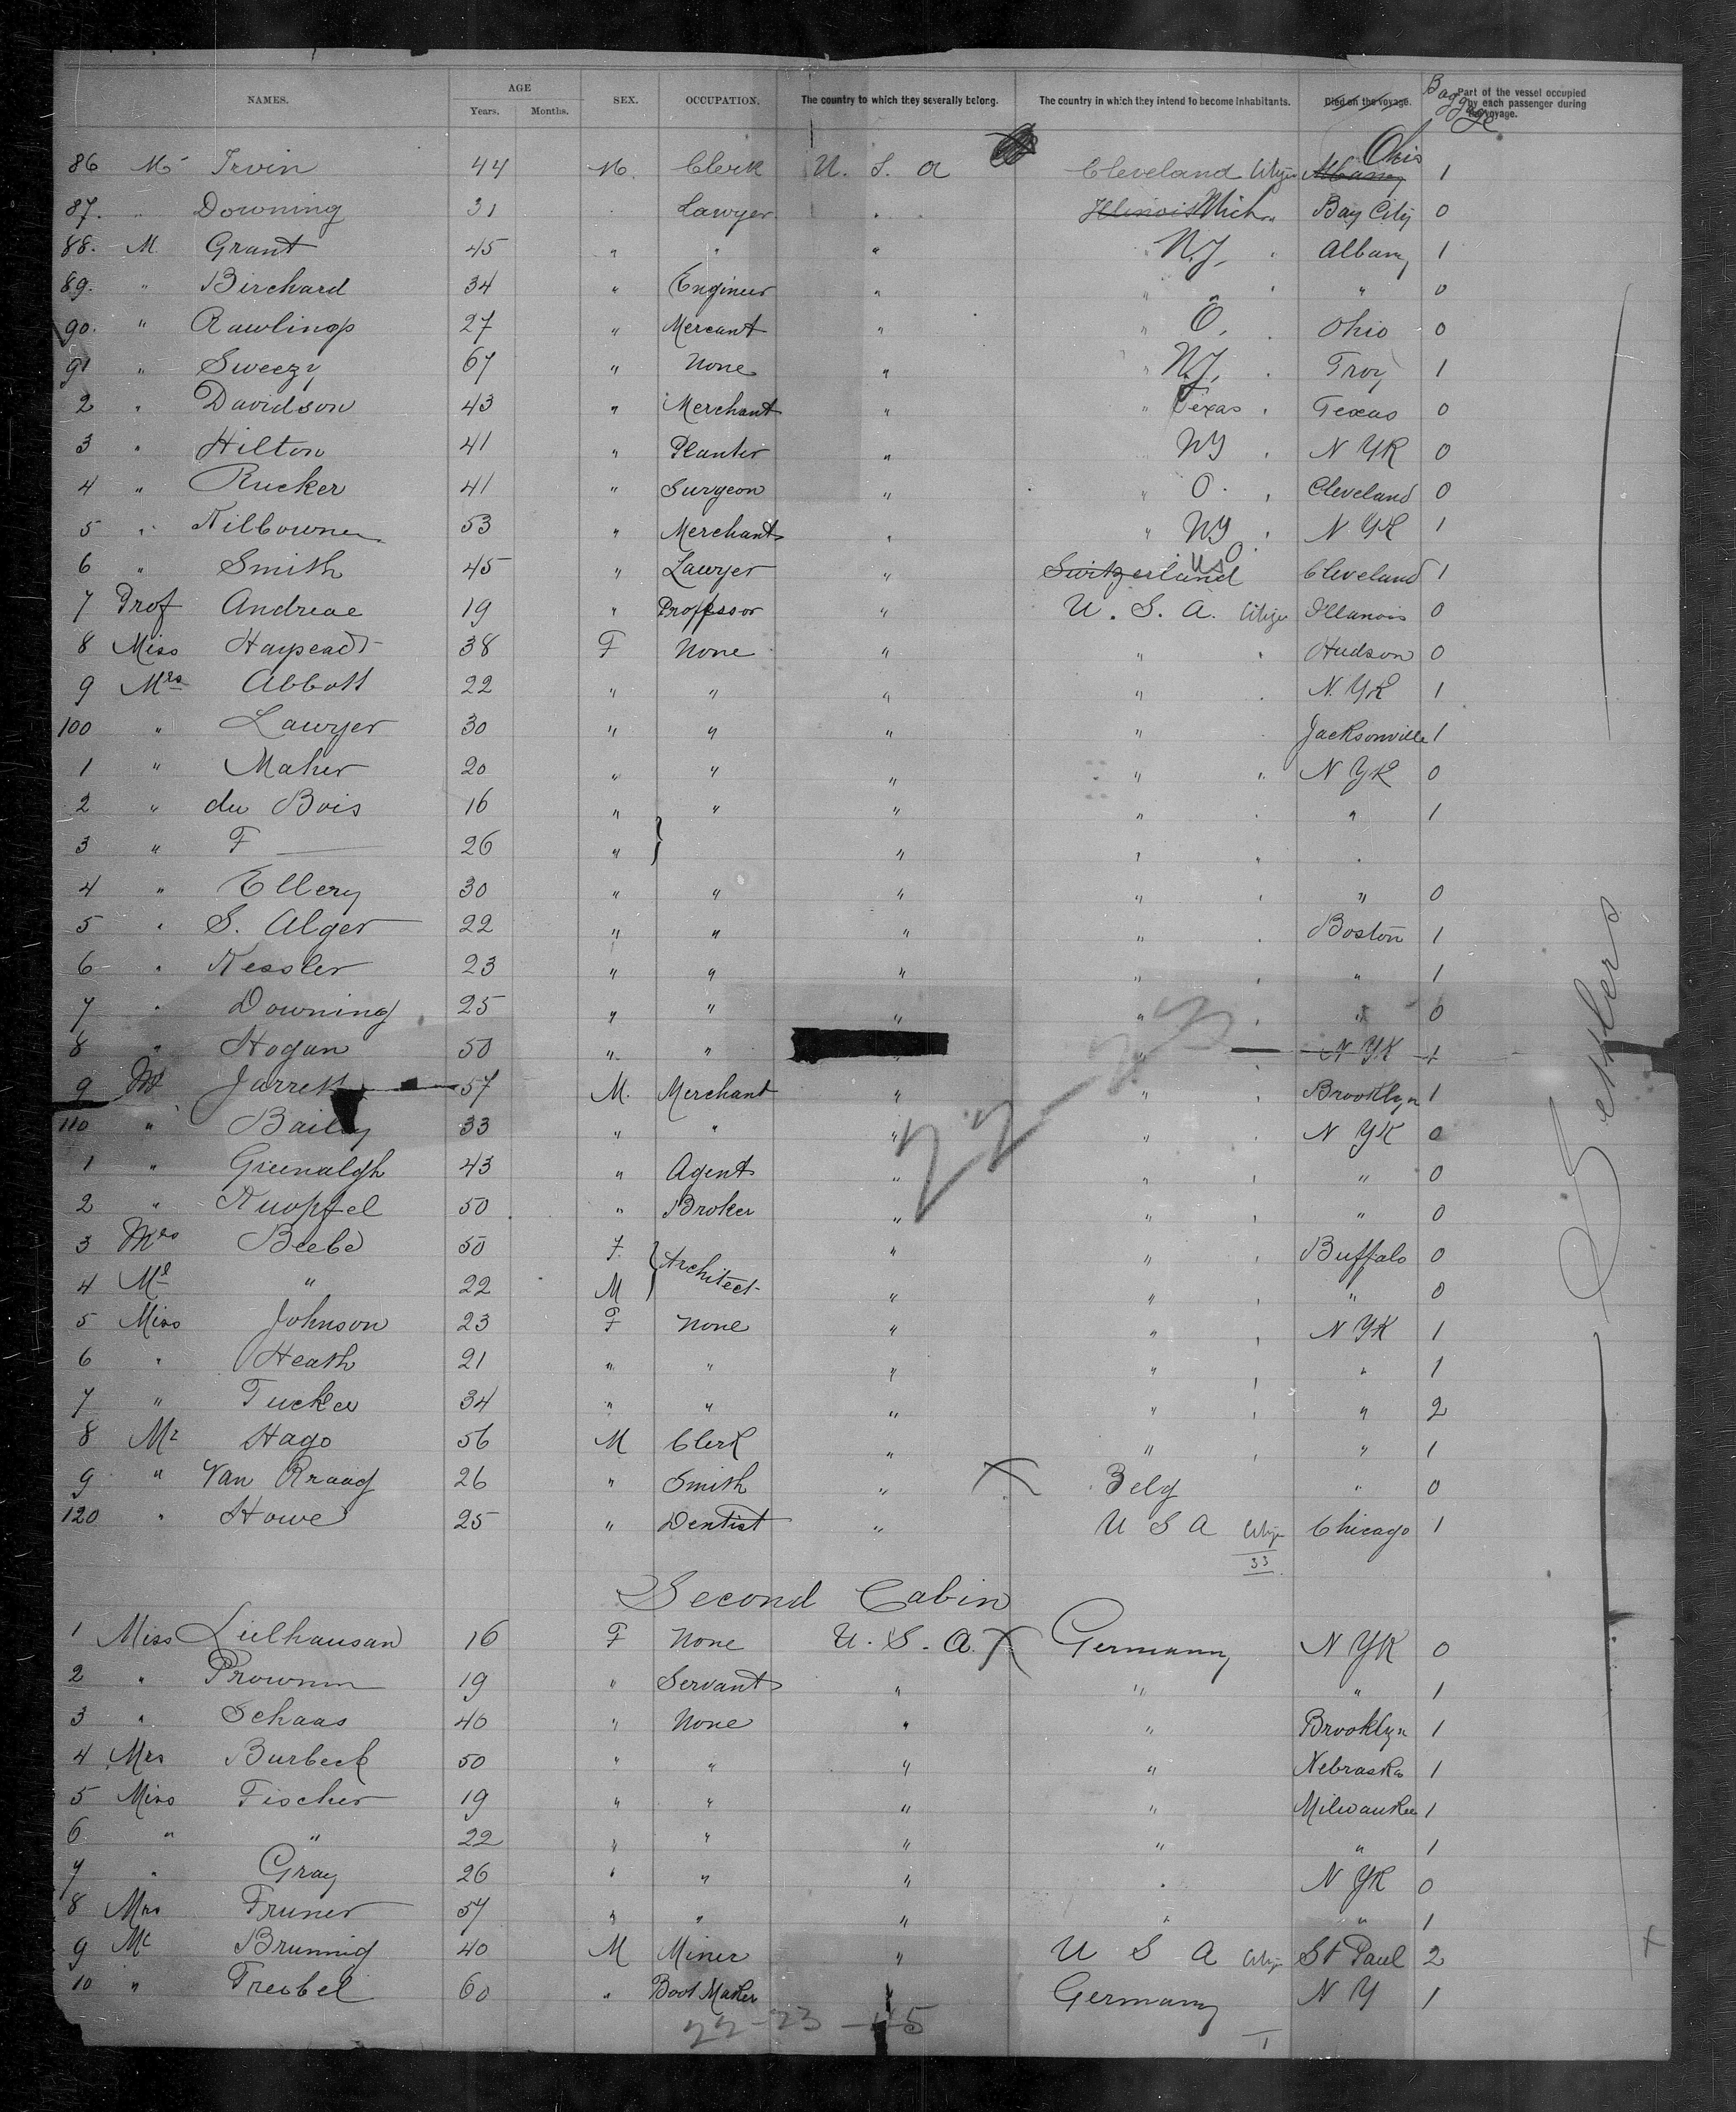 NAMES. AGE Years. Months. SEX. OCCUPATION. The country to which they severally belong. The country in which they intend to become inhabitants. Died on the voyage. Baggage Part of the vessel occupied by each passenger during the voyage.
86 Mr Irvin 44 M. Clerk U. S. A Cleveland Citizen Albany Ohio 1
87. " Downing 31 Lawyer " Illinois Mich " Bay City 0
88. M Grant 45 " " " N.Y. " Albany 1
89. " Birchard 34 " Engineer " " " " " 0
90. " Rawlings 27 " Mercant " " O. " Ohio 0
91 " Sweezy 67 " None " " N.Y. " Troy 1
2 " Davidson 43 " Merchant " " Texas " Texas 0
3 " Hilton 41 " Planter " NY " N YK 0
4 " Rucker 41 " Surgeon " " O. " Cleveland 0
5 " Kilbourne 53 " Merchant " " NY " N. YK 1
6 " Smith 45 " Lawyer " Switzerland US O. Cleveland 1
7 Prof Andreae 19 " Professor " U. S. A. Citizen Illanois 0
8 Miss 38 F None " " " Hudson 0
9 Mrs Abbott 22 " " " " " N. YK 1
100 " Lawyer 30 " " " " Jacksonville 1
1 " Maher 20 " " " " " N YK 0
2 " du Bois 16 " " " " " " 1
3 " F — 26 " } " " " "
4 " Ellery 30 " " " " " " 0
5 " S. Alger 22 " " " " " Boston 1
6 " Kessler 23 " " " " " " 1
7 " Downing 25 " " " " " " 0
8 " Hogan 50 " " " " " N YK 1
9 Mr Jarrett 57 M. Merchant " " " Brooklyn 1
110 " Bailey 33 " " " " " N YK 0
1 " Greenalgh 43 " Agent " " " " 0
2 " Knopfel 50 " Broker " " " " 0
3 Mrs Beebe 50 F { Architect " " " Buffalo 0
4 Mr " 22 M " " " " 0
5 Miss Johnson 23 F None " " " N YK 1
6 " Heath 21 " " " " " " 1
7 " Tucker 34 " " " " " " 2
8 Mr Hago 56 M Clerk " " " " 1
9 " Van Kraag 26 " Smith " X Belg " 0
120 " Howe 25 " Dentist " U S A Citizen Chicago 1
33
Second Cabin
1 Miss Lielhausan 16 F None U. S. A. X Germany N YK 0
2 " 19 " Servant " " " 1
3 " Schaas 40 " None " " Brooklyn 1
4 Mrs Burbeck 50 " " " " Nebraska 1
5 Miss Fischer 19 " " " " Milwaukee 1
6 " " 22 " " " " " 1
7 " Gray 26 " " " " N YK 0
8 Mrs Fruner 57 " " " " " 1
9 Mr Brunnig 40 M Miner " U S A Citizen St Paul 2
10 " Treibel 60 " Boot Maker " Germany N Y 1
22-23
22-23-45